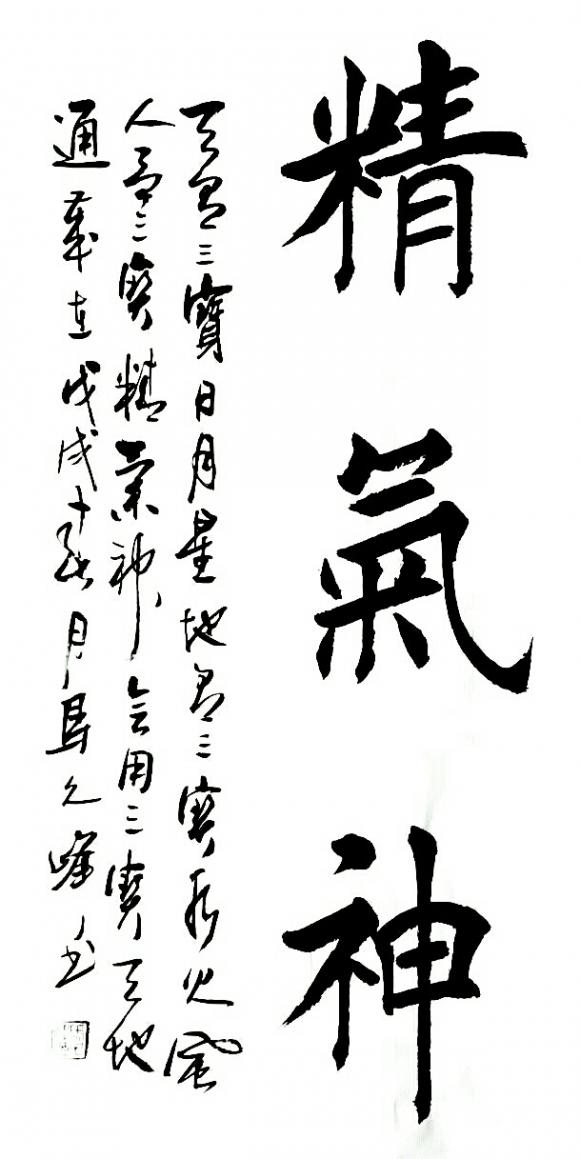 精氣神
天有三寶日月星地有三寶水火風
人有三寶精氣神會用三寶天地
通 歲在戊戌十月馬久 書